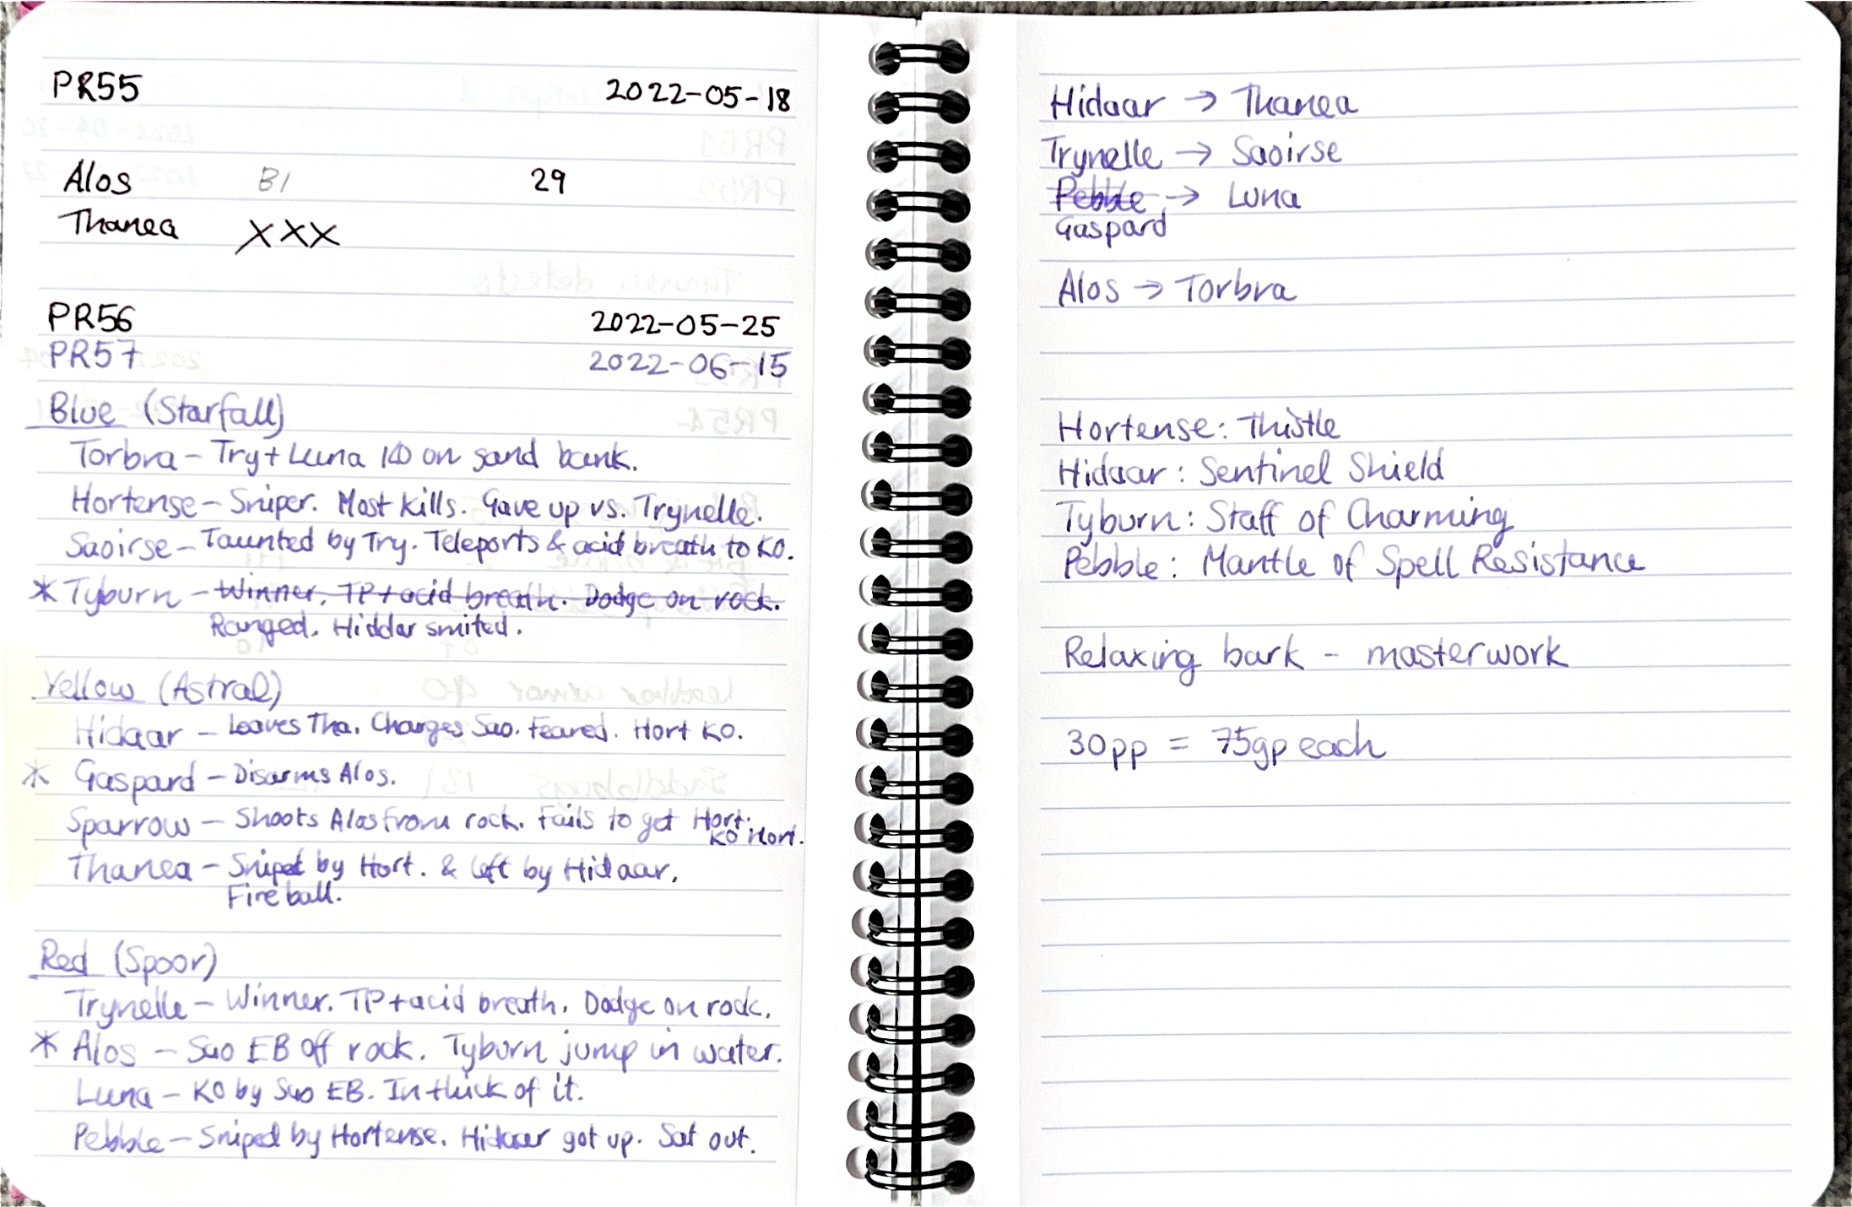 PR55 2022-05-18
Alos B1 29
Thanea XXX
PR56 2022-05-25
PR57 2022-06-15
Blue (Starfall)
Torbra - Try + Luna KO on sand bank.
Hortense - Sniper. Most kills. Gave up vs. Trynelle.
Saoirse - Taunted by Try. Teleports & acid breath to KO.
* Tyburn - Winner. TP + acid breath. Dodge on rock.
Ranged. Hiddar smited.
Yellow (Astral)
Hidaar - Leaves Tha. Charges Sao. Feared. Hort KO.
* Gaspard - Disarms Alos.
Sparrow - Shoots Alos from rock. Fails to get Hort.
KO Hort.
Thanea - Sniped by Hort. & left by Hidaar.
Fireball.
Red (Spoor)
Trynelle - Winner. TP + acid breath. Dodge on rock.
* Alos - Sao EB off rock. Tyburn jump in water.
Luna - KO by Sao EB. In thick of it.
Pebble - Sniped by Hortense. Hidaar got up. Sat out.
Hidaar → Thanea
Trynelle → Saoirse
Pebble → Luna
Gaspard
Alos → Torbra
Hortense: Thistle
Hidaar: Sentinel Shield
Tyburn: Staff of Charming
Pebble: Mantle of Spell Resistance
Relaxing bark - masterwork
30pp = 75gp each